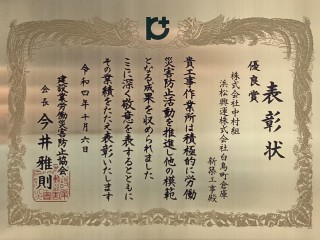 表彰状
優良賞
株式会社中村組
浜松興運株式会社白鳥町倉庫
新築工事殿
貴工事作業所は積極的に労働
災害防止活動を推進し他の模範
となる成果を収められました
ここに深く敬意を表するとともに
その業績をたたえ表彰いたします
令和四年十月六日
建設業労働災害防止協会
会長 今井雅則